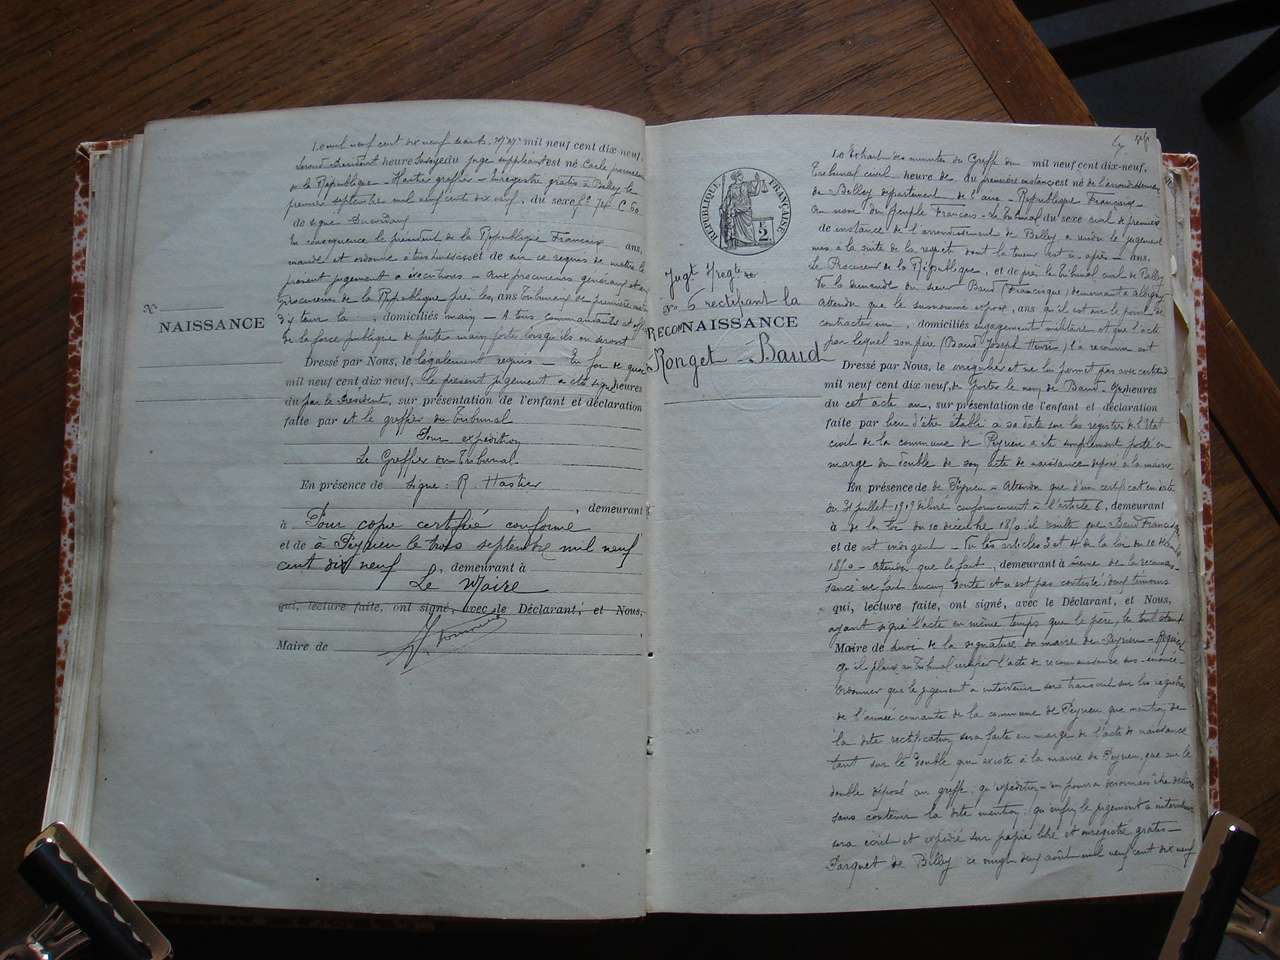 mil neuf cent dix neuf
mil neuf cent dix-neuf,
heure juge suppléant est né
la République - Hastier greffier - Enregistré gratis à Belley le
premier septembre mil neuf cent dix neuf, du sexe f° 74 C 50
de signé
En conséquence le président de la République Français ans,
mande et ordonne à tous huissiers et de sur ce requis de mettre le
présent jugement à exécution - Aux procureurs généraux et aux
procureurs de la République près les ans Tribunaux de première
d'y tenir la , domiciliés main - A tous commandants et
de la force publique de prêter main forte lorsqu'ils en seront
N°
NAISSANCE
Dressé par Nous, le légalement requis - En foi de quoi
mil neuf cent dix neuf, le présent jugement a été signé heures
du par le Président, sur présentation de l'enfant et déclaration
faite par et le greffier du Tribunal
Pour expédition
Le Greffier du Tribunal
En présence de Signé : R. Hastier
, demeurant
à Pour copie certifiée conforme
et de à Peyrieu le trois septembre mil neuf
cent dix neuf , demeurant à
Le Maire
qui, lecture faite, ont signé, avec le Déclarant, et Nous,
Maire de
RÉPUBLIQUE FRANÇAISE
Jugt
N° 5 rectifiant la
RECONNAISSANCE
Ronget - Baud
des minutes du Greffe du mil neuf cent dix-neuf,
Tribunal civil heure de du première instance est né de l'arrondissement
de Belley département de l'Ain - République Française -
Au nom du Peuple Français - Le tribunal du sexe civil de première
de instance de l'arrondissement de Belley a rendu le jugement
mis à la suite de la requête dont la teneur est ci-après - ans,
Le Procureur de la République, et de près le Tribunal civil de Belley
Vu la demande du sieur Baud (Francisque) demeurant à
Attendu que le susnommé expose, ans qu'il est sur le point de
contracter un , domiciliés engagement militaire et que l'acte
par lequel son père (Baud Joseph ) l'a reconnu est
Dressé par Nous, le irrégulier et ne lui permet pas
mil neuf cent dix-neuf, de porter le nom de Baud - heures
du cet acte au , sur présentation de l'enfant et déclaration
faite par lieu d'être établi à sa date sur les registres de l'état
civil de la commune de Peyrieu a été simplement porté en
marge du double de son acte de naissance déposé à la mairie
En présence de de Peyrieu - Attendu que d'un certificat en date
du 31 juillet 1919 délivré conformément à l'article 6, demeurant
à de la loi du 10 décembre 1850 il résulte que Baud Francisque
et de est indigent - Vu les articles 3 et 4 de la loi du 10
1850 - Attendu que le fait , demeurant à même de la reconnais-
sance ne fait aucun doute et n'est pas contesté deux témoins
qui, lecture faite, ont signé, avec le Déclarant, et Nous,
ayant signé l'acte en même temps que le père, le tout étant
Maire de suivi de la signature du maire de Peyrieu - Requiert
Qu'il plaise au Tribunal l'acte de reconnaissance sus-énoncé -
Ordonner que le jugement à intervenir sera transcrit sur les registres
de l'année courante de la commune de Peyrieu que mention de
la dite rectification sera faite en marge de l'acte de naissance
tant sur le double qui existe à la mairie de Peyrieu, que sur le
double déposé au greffe, qu'expédition n'en pourra désormais être délivrée
sans contenir la dite mention, qu'enfin le jugement à intervenir
sera écrit et expédié sur papier libre et enregistré gratis -
Parquet de Belley ce vingt deux août mil neuf cent dix neuf